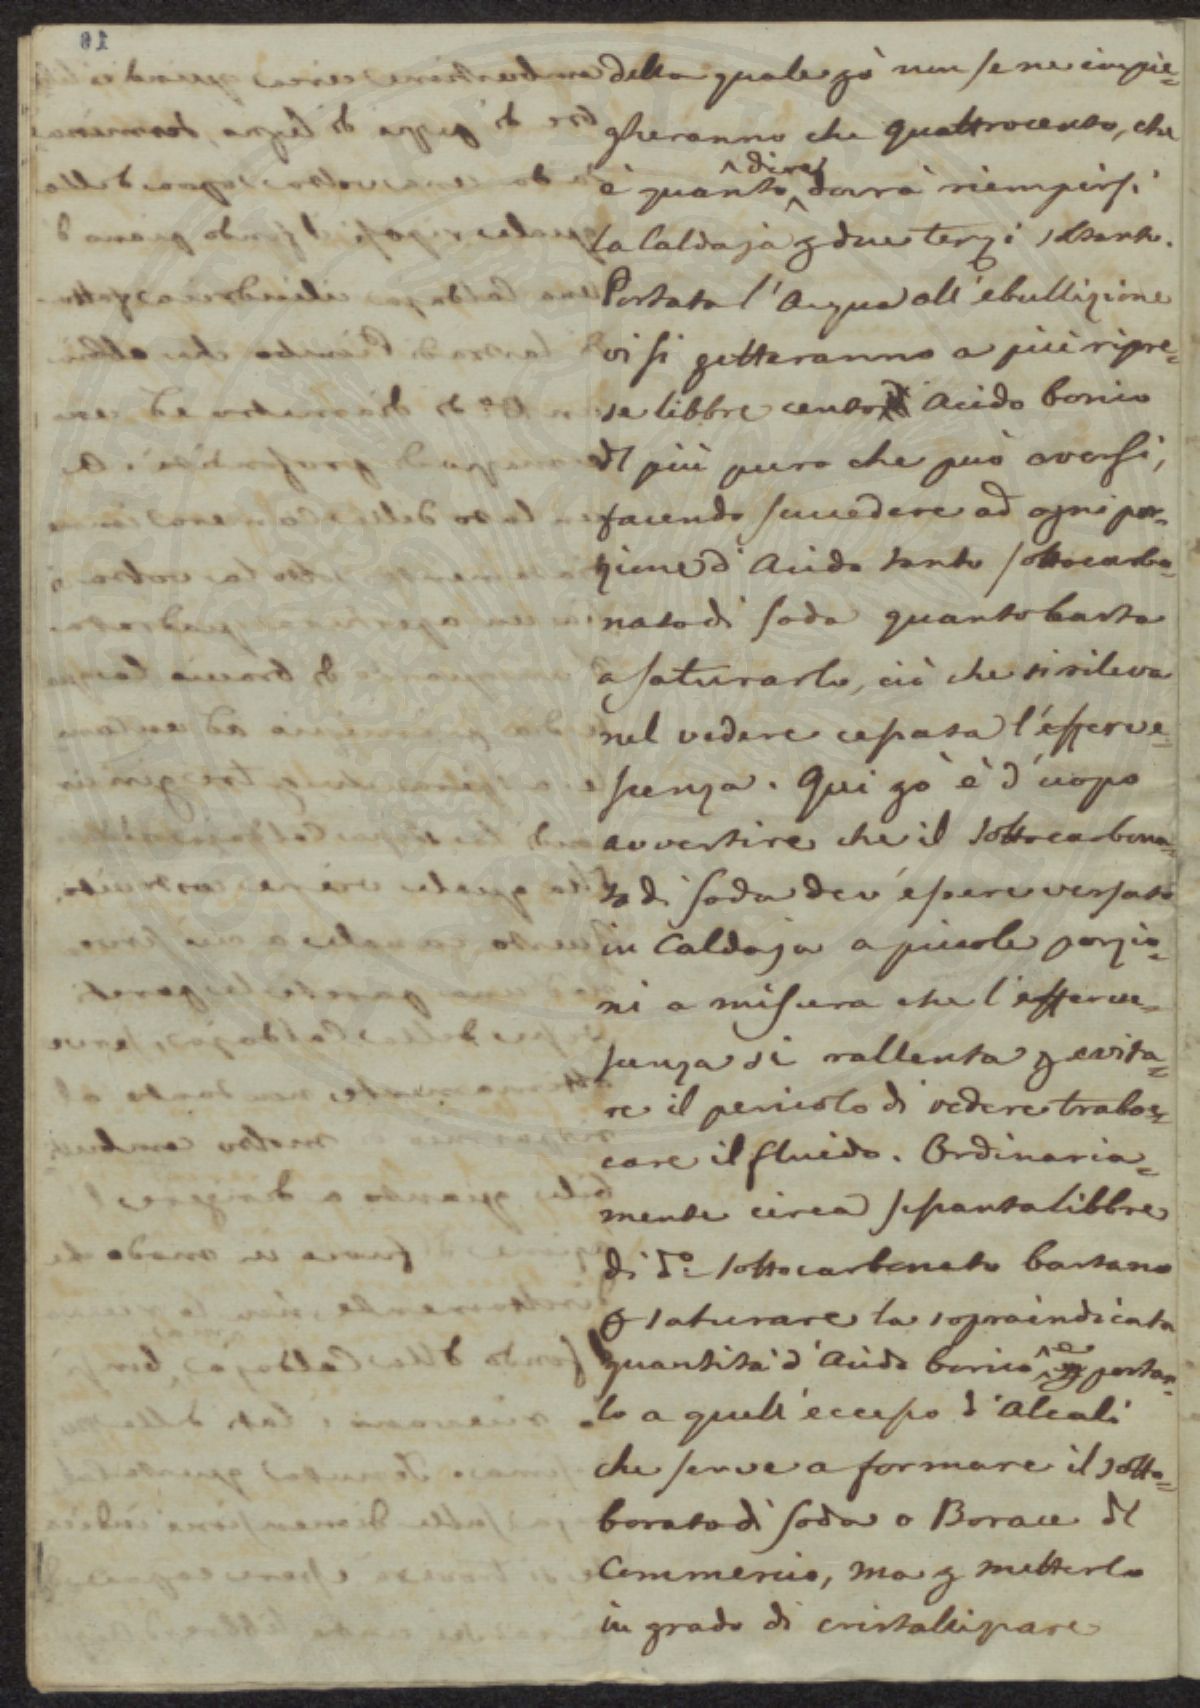 della quale ꝑò non se ne impie=
gheranno che quattrocento, che
è quanto dire dovrà riempirsi
la Caldaja ꝑ due terzi soltanto.
Portata l'Acqua all'ebullizione
vi si getteranno a più ripre=
se libbre cento Acido borico
del più puro che può aversi,
facendo succedere ad ogni por=
zione d'Acido tanto sottocarbo=
nato di soda quanto basta
a saturarlo, ciò che si rileva
nel vedere cessata l'efferve=
scenza. Qui ꝑò è d'uopo
avvertire che il sottocarbona=
to di soda dev'essere versato
in Caldaja a piccole porzio=
ni a misura che l'efferve=
scenza si rallenta ꝑ evita=
re il pericolo di vedere traboc=
care il fluido. Ordinaria=
mente circa sessanta libbre
di do. sottocarbonato bastano
ꝑ saturare la sopraindicata
quantità d'Acido borico e portar=
lo a quell'eccesso d'Alcali
che serve a formare il sotto=
borato di soda o Borace del
Commercio, ma ꝑ metterlo
in grado di cristallizzare